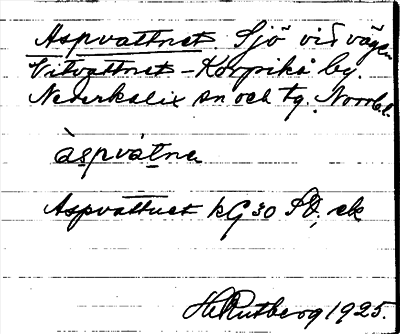 Aspvattnet. Sjö vid vägen
Vitvattnet - Korpikå by.
Nederkalix sn och tg. Norrb. l.
àspvátne
Aspvattnet kG 30 SO, ek
H Rutberg 1925.